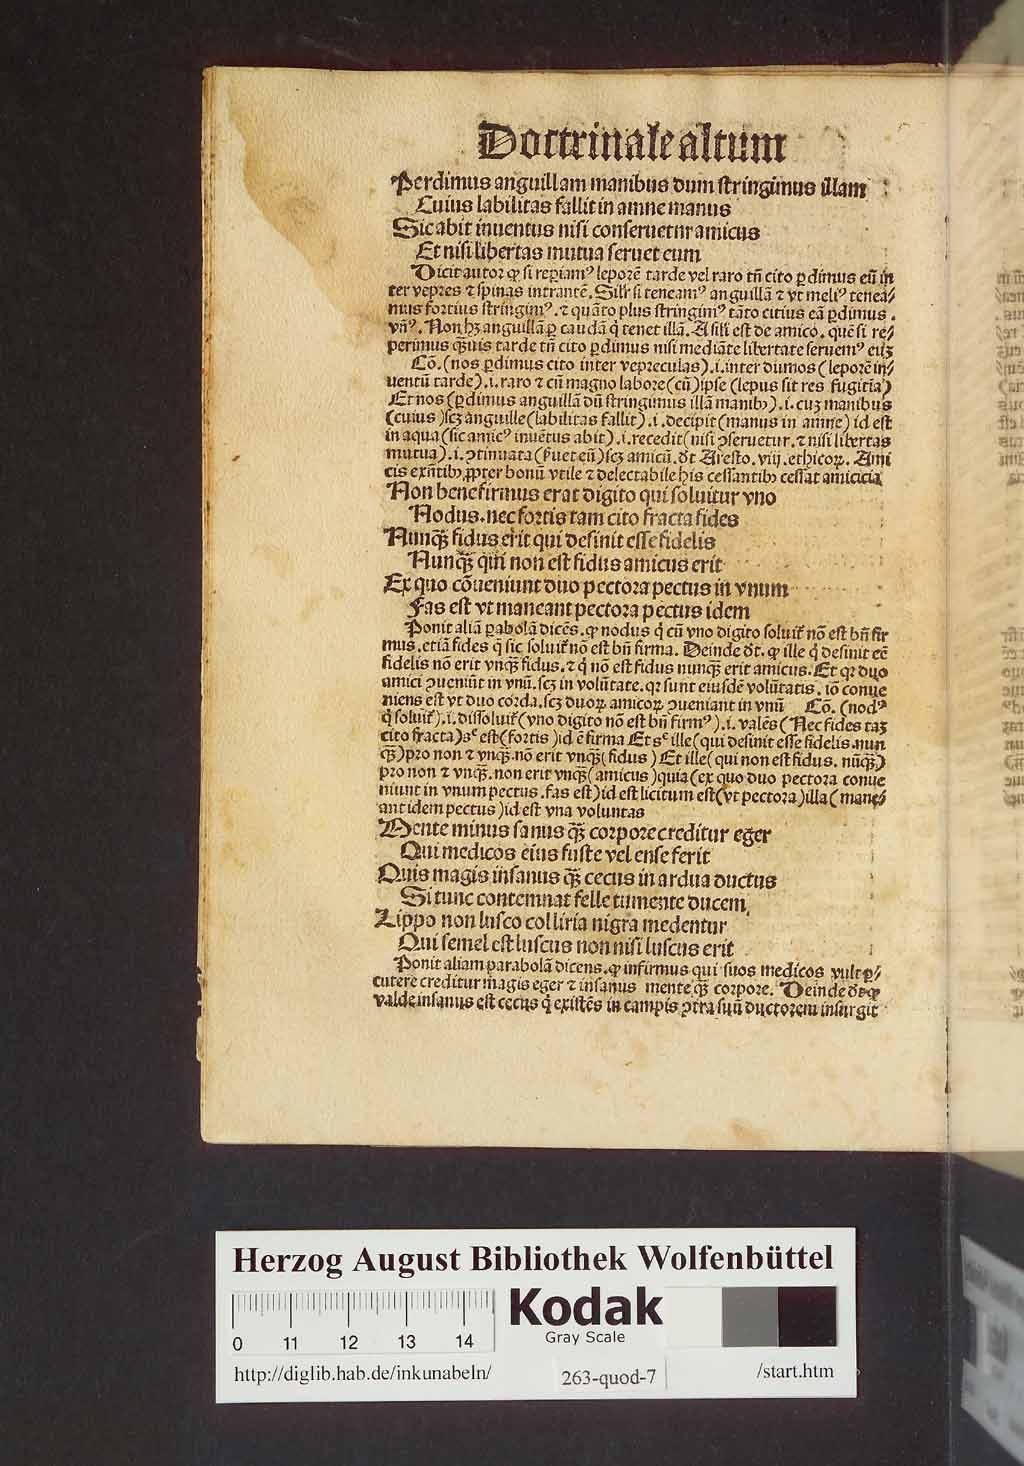 Doctrinale altum
Perdimus anguillam manibus dum stringimus illam
Cuius labilitas fallit in amne manus
Sic abit inuentus nisi conseruetur amicus
Et nisi libertas mutua seruet eum
Dicit autor ꝙ si reꝑiamꝰ leporē tarde vel raro tñ cito ꝑdimus eū in
ter vepres ⁊ spinas intrantē. Silr si teneamꝰ anguillā ⁊ vt meliꝰ tenea/
mus fortius stringimꝰ. ⁊ quāto plus stringimꝰ tāto citius eā ꝑdimus.
vñꝰ. Non hꝫ anguillā ꝑ caudā q̇ tenet illā. A sili est de amico. quē si re/
perimus q̄uis tarde tñ cito ꝑdimus nisi mediāte libertate seruemꝰ euꝫ
Cō. (nos ꝑdimus cito inter vepreculas).i.inter dumos (leporē in/
uentū tarde).i. raro ⁊ cū magno labore (cū) ipse (lepus sit res fugitia)
Et nos (ꝑdimus anguillā dū stringimus illā manibꝰ).i. cuꝫ manibus
(cuius) scꝫ anguille (labilitas fallit).i. decipit (manus in amne) id est
in aqua (sic amicꝰ inuētus abit).i. recedit (nisi ↄseruetur. ⁊ nisi libertas
mutua).i. ↄtinuata (ẜuet eū) scꝫ amicū. dt̄ Aresto. viij. ethicoꝝ. Ami
cis exñtibꝰ ꝓpter bonū vtile ⁊ delectabile his cessantibꝰ cessat amicicia
Non bene firmus erat digito qui soluitur vno
Nodus. nec fortis tam cito fracta fides
Nunq̄ fidus erit qui desinit esse fidelis
Nunq̄ qui non est fidus amicus erit
Ex quo cōueniunt duo pectora pectus in vnum
Fas est vt maneant pectora pectus idem
Ponit aliā ꝑabolā dicēs. ꝙ nodus q̇ cū vno digito soluit̄ nō est bñ fir
mus. etiā fides q̄ sic soluit̄ nō est bñ firma. Deinde dt̄. ꝙ ille q̇ desinit eē
fidelis nō erit vnq̄ fidus. ⁊ q̇ nō est fidus nunq̄ erit amicus. Et qꝛ duo
amici ↄueniūt in vnū. scꝫ in volūtate. qꝛ sunt eiusdē volūtatis. iō conue
niens est vt duo corda. scꝫ duoꝝ amicoꝝ ↄueniant in vnū Cō. (nodꝰ
q̇ soluit̄).i. dissoluit̄ (vno digito nō est bñ firmꝰ).i. valēs (Nec fides taꝫ
cito fracta) sᶜ est (fortis) id ē firma Et sᶜ ille (qui desinit esse fidelis. nun
q̄) pro non ⁊ vnq̄. nō erit vnq̄ (fidus) Et ille (qui non est fidus. nūq̄)
pro non ⁊ vnq̄. non erit vnq̄ (amicus) quia (ex quo duo pectora conue
niunt in vnum pectus. fas est) id est licitum est (vt pectora) illa (mane/
ant idem pectus) id est vna voluntas
Mente minus sanus q̄ corpore creditur eger
Qui medicos eius fuste vel ense ferit
Quis magis insanus q̄ cecus in ardua ductus
Si tunc contemnat felle tumente ducem
Lippo non lusco colliria nigra medentur
Qui semel est luscus non nisi luscus erit
Ponit aliam parabolā dicens. ꝙ infirmus qui suos medicos vult ꝑ/
cutere creditur magis eger ⁊ insanus mente q̄ corpore. Deinde dt̄ ꝙ
valde insanus est cecus q̇ existēs in campis ↄtra suū ductorem insurgit
Herzog August Bibliothek Wolfenbüttel
0 11 12 13 14
Kodak
Gray Scale
http://diglib.hab.de/inkunabeln/
263-quod-7
/start.htm